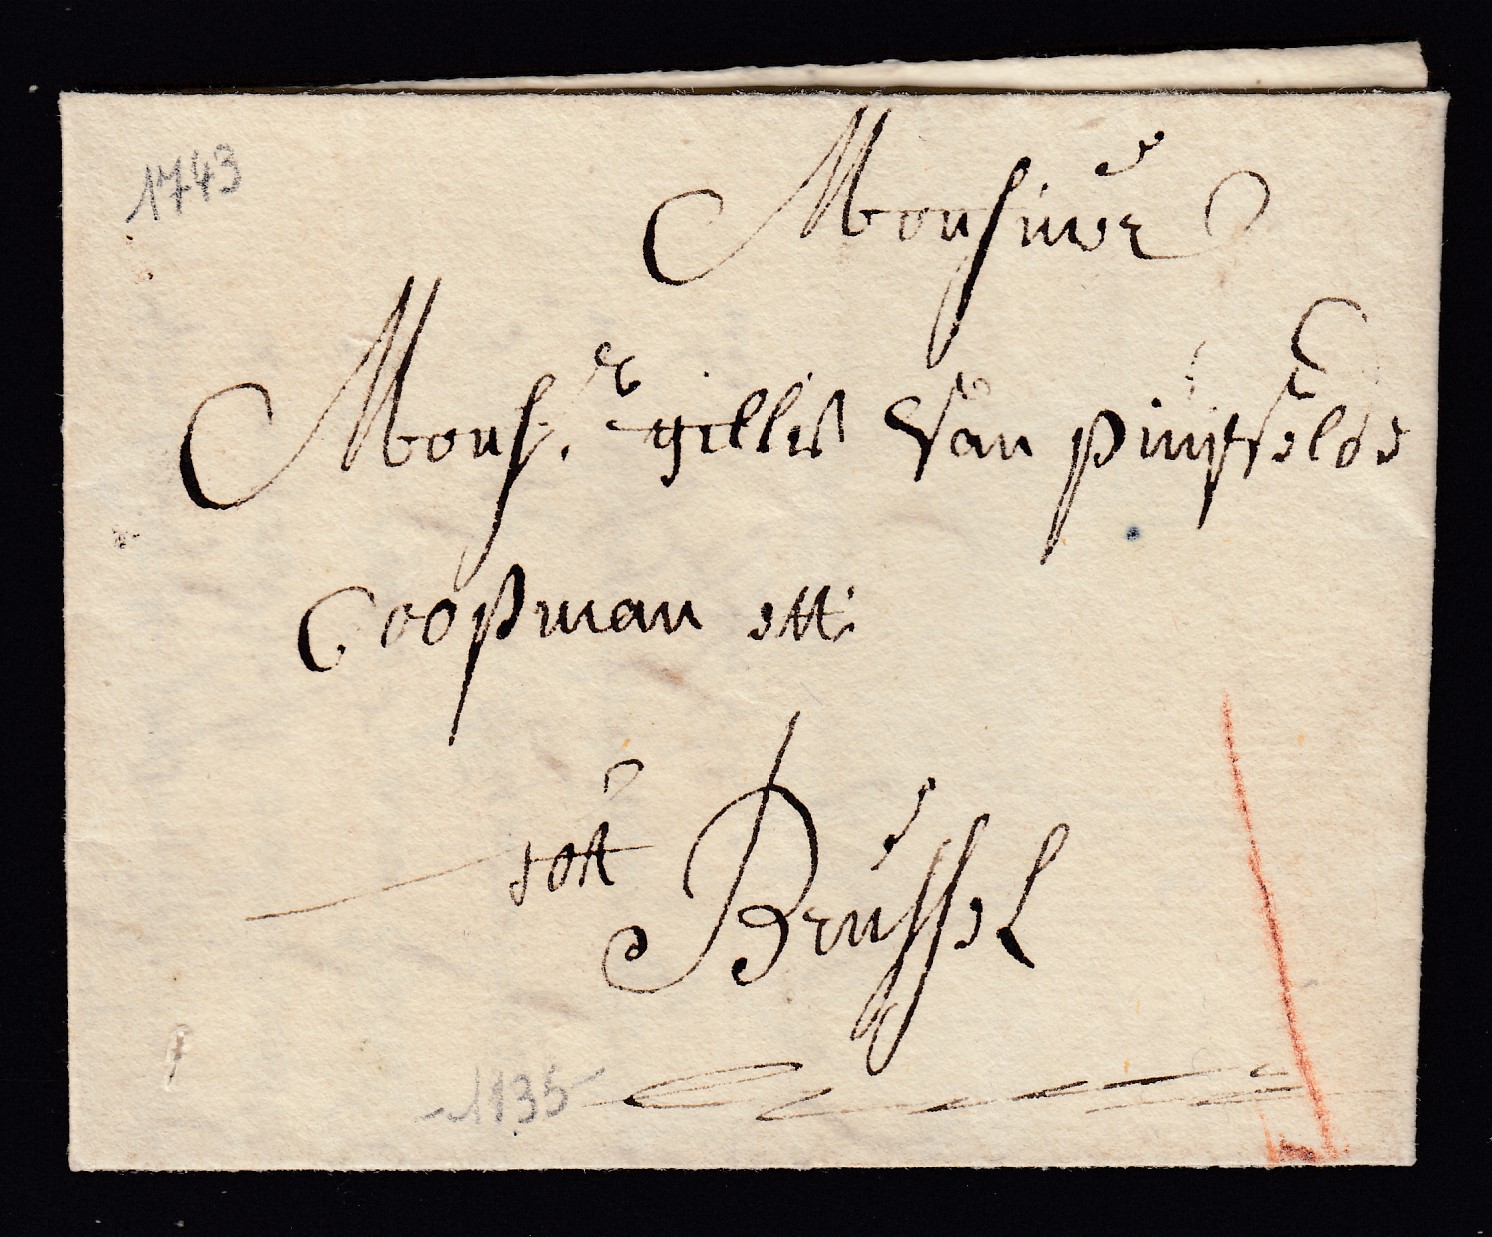 1743
Monsieur
Mons.r gillis van
Coopman ett:
tott Brussel
1135